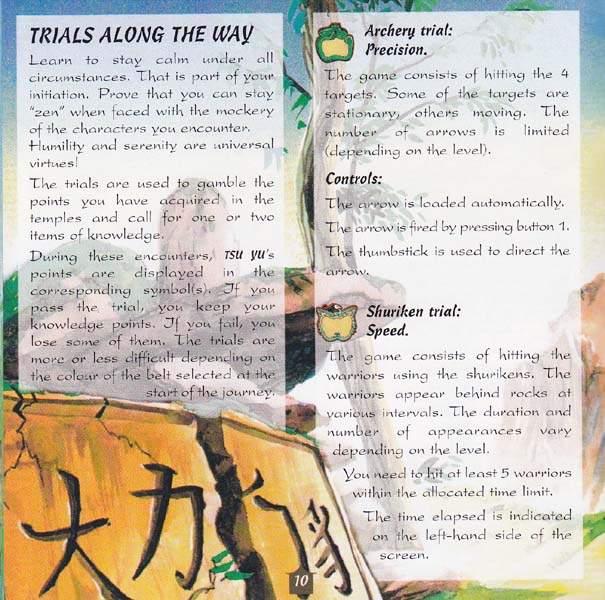 TRIALS ALONG THE WAY
Learn to stay calm under all
circumstances. That is part of your
initiation. Prove that you can stay
"zen" when faced with the mockery
of the characters you encounter.
Humility and serenity are universal
virtues!
The trials are used to gamble the
points you have acquired in the
temples and call for one or two
items of knowledge.
During these encounters, TSU YU's
points are displayed in the
corresponding symbol(s). If you
pass the trial, you keep your
knowledge points. If you fail, you
lose some of them. The trials are
more or less difficult depending on
the colour of the belt selected at the
start of the journey.
Archery trial:
Precision.
The game consists of hitting the 4
targets. Some of the targets are
stationary, others moving. The
number of arrows is limited
(depending on the level).
Controls:
The arrow is loaded automatically.
The arrow is fired by pressing button 1.
The thumbstick is used to direct the
arrow.
Shuriken trial:
Speed.
The game consists of hitting the
warriors using the shurikens. The
warriors appear behind rocks at
various intervals. The duration and
number of appearances vary
depending on the level.
You need to hit at least 5 warriors
within the allocated time limit.
The time elapsed is indicated
on the left-hand side of the
screen.
大力
10